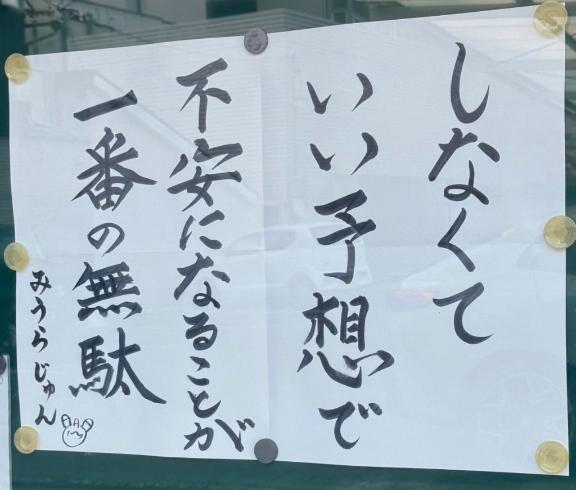 しなくて
いい予想で
不安になることが
一番の無駄
みうらじゅん